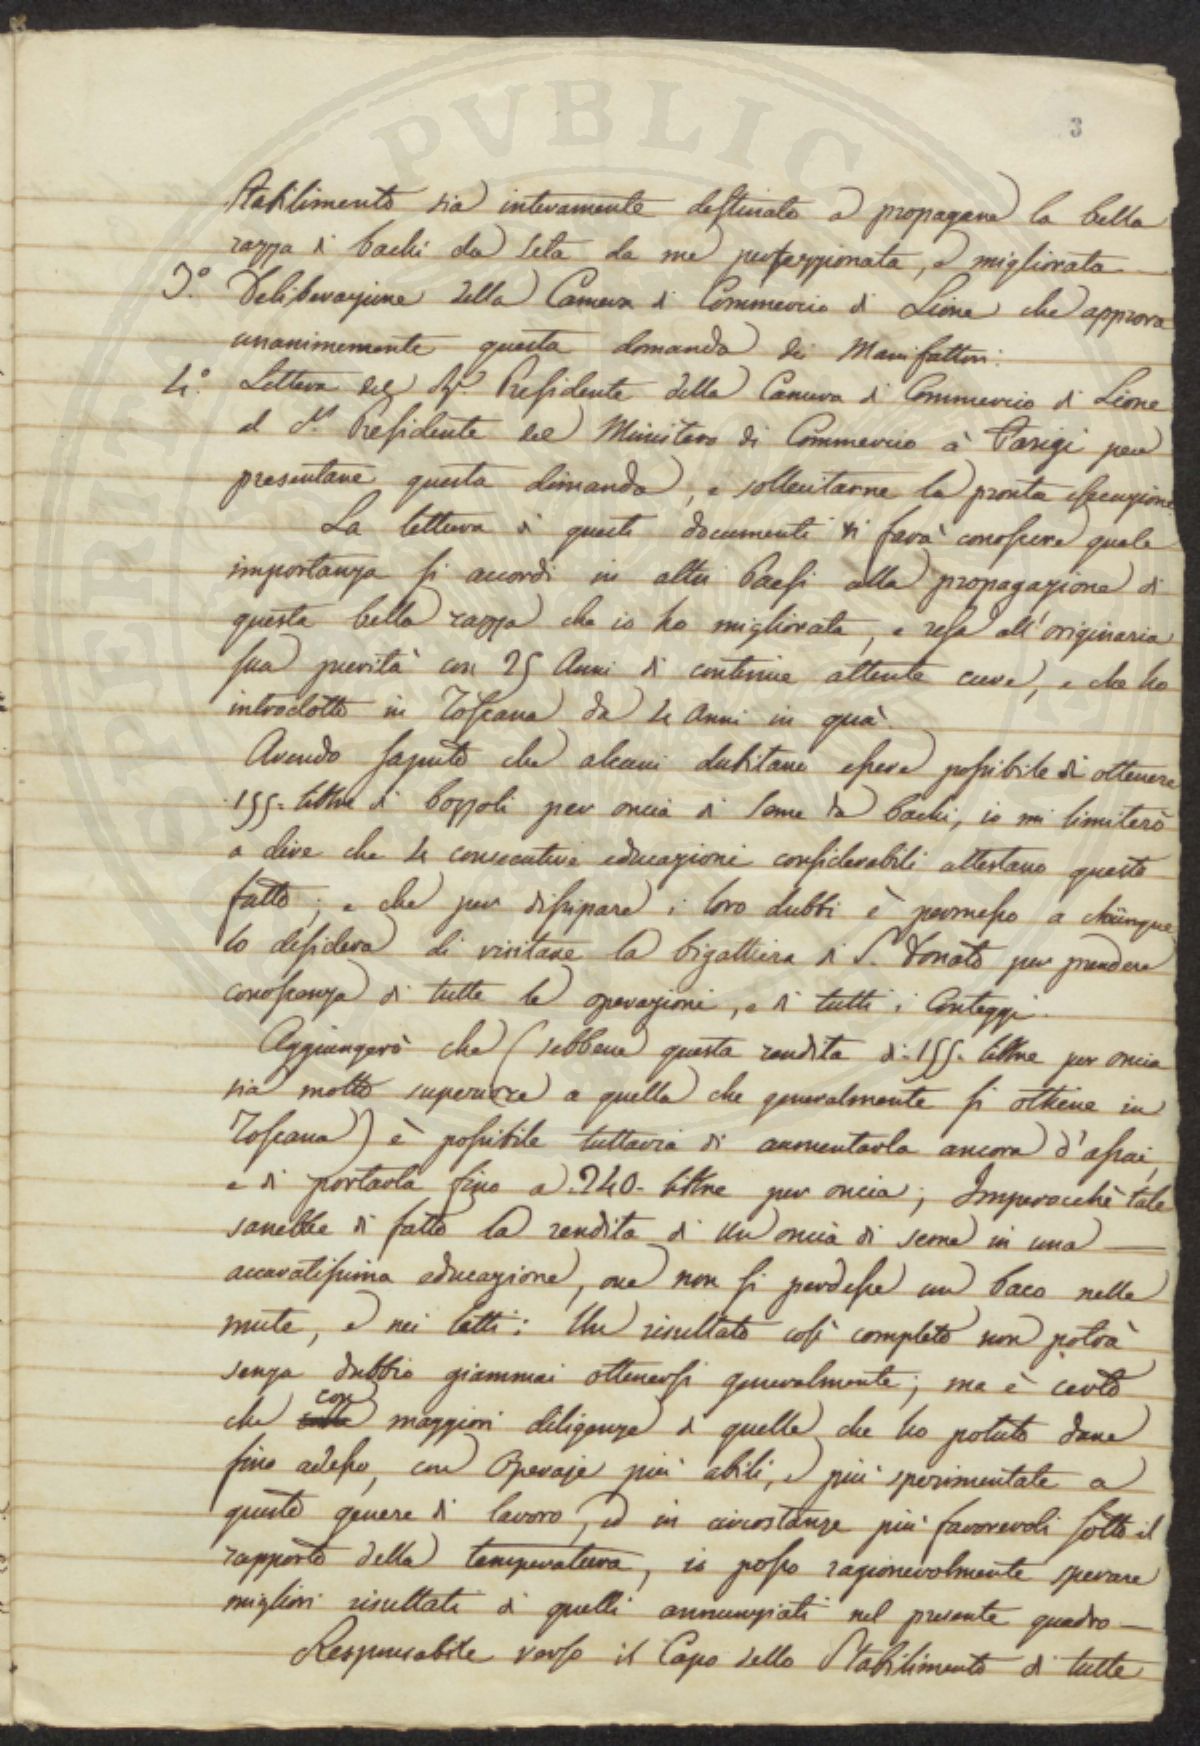 3
Stabilimento sia interamente destinato a propagare la bella
razza di bachi da seta da me perfezzionata, e migliorata
3.° Deliberazione della Camera di Commercio di Lione che approva
unanimemente questa domanda dei Manifattori.
4.° Lettera del Sig.r Presidente della Camera di Commercio di Lione
al S.r Presidente del Ministero di Commercio à Parigi per
presentare questa dimanda, e sollecitarne la pronta esecuzione
La lettura di questi documenti vi farà conoscere quale
importanza si accordi in altri Paesi alla propagazione di
questa bella razza che io ho migliorata, e resa all'originaria
sua purità con 25 Anni di continue attente cure, e che ho
introdotto in Toscana da 4 Anni in quà
Avendo saputo che alcuni dubitano essere possibile di ottenere
155. libbre di bozzoli per oncia di seme da bachi, io mi limiterò
a dire che 4 consecutive educazioni considerabili attestano questo
fatto; e che per dissipare i loro dubbi è permesso a chiunque
lo desidera di visitare la bigattiera di S. Donato per prendere
conoscenza di tutte le operazioni, e di tutti i Conteggi.
Aggiungerò che (sebbene questa rendita di 155. libbre per oncia
sia molto superiore a quella che generalmente si ottiene in
Toscana) è possibile tuttavia di aumentarla ancora d'assai,
e di portarla fino a 240. libbre per oncia; Imperocchè tale
sarebbe di fatto la rendita di un oncia di seme in una
accuratissima educazione, ove non si perdesse un baco nelle
mute, e nei letti: Un risultato così completo non potrà
senza dubbio giammai ottenersi generalmente; ma è certo
che con maggiori diligenze di quelle che ho potuto dare
fino adesso, con Operaje più abili, e più sperimentate a
questo genere di lavoro, ed in circostanze più favorevoli sotto il
rapporto della temperatura, io posso ragionevolmente sperare
migliori risultati di quelli annunziati nel presente quadro
Responsabile verso il Capo dello Stabilimento di tutte